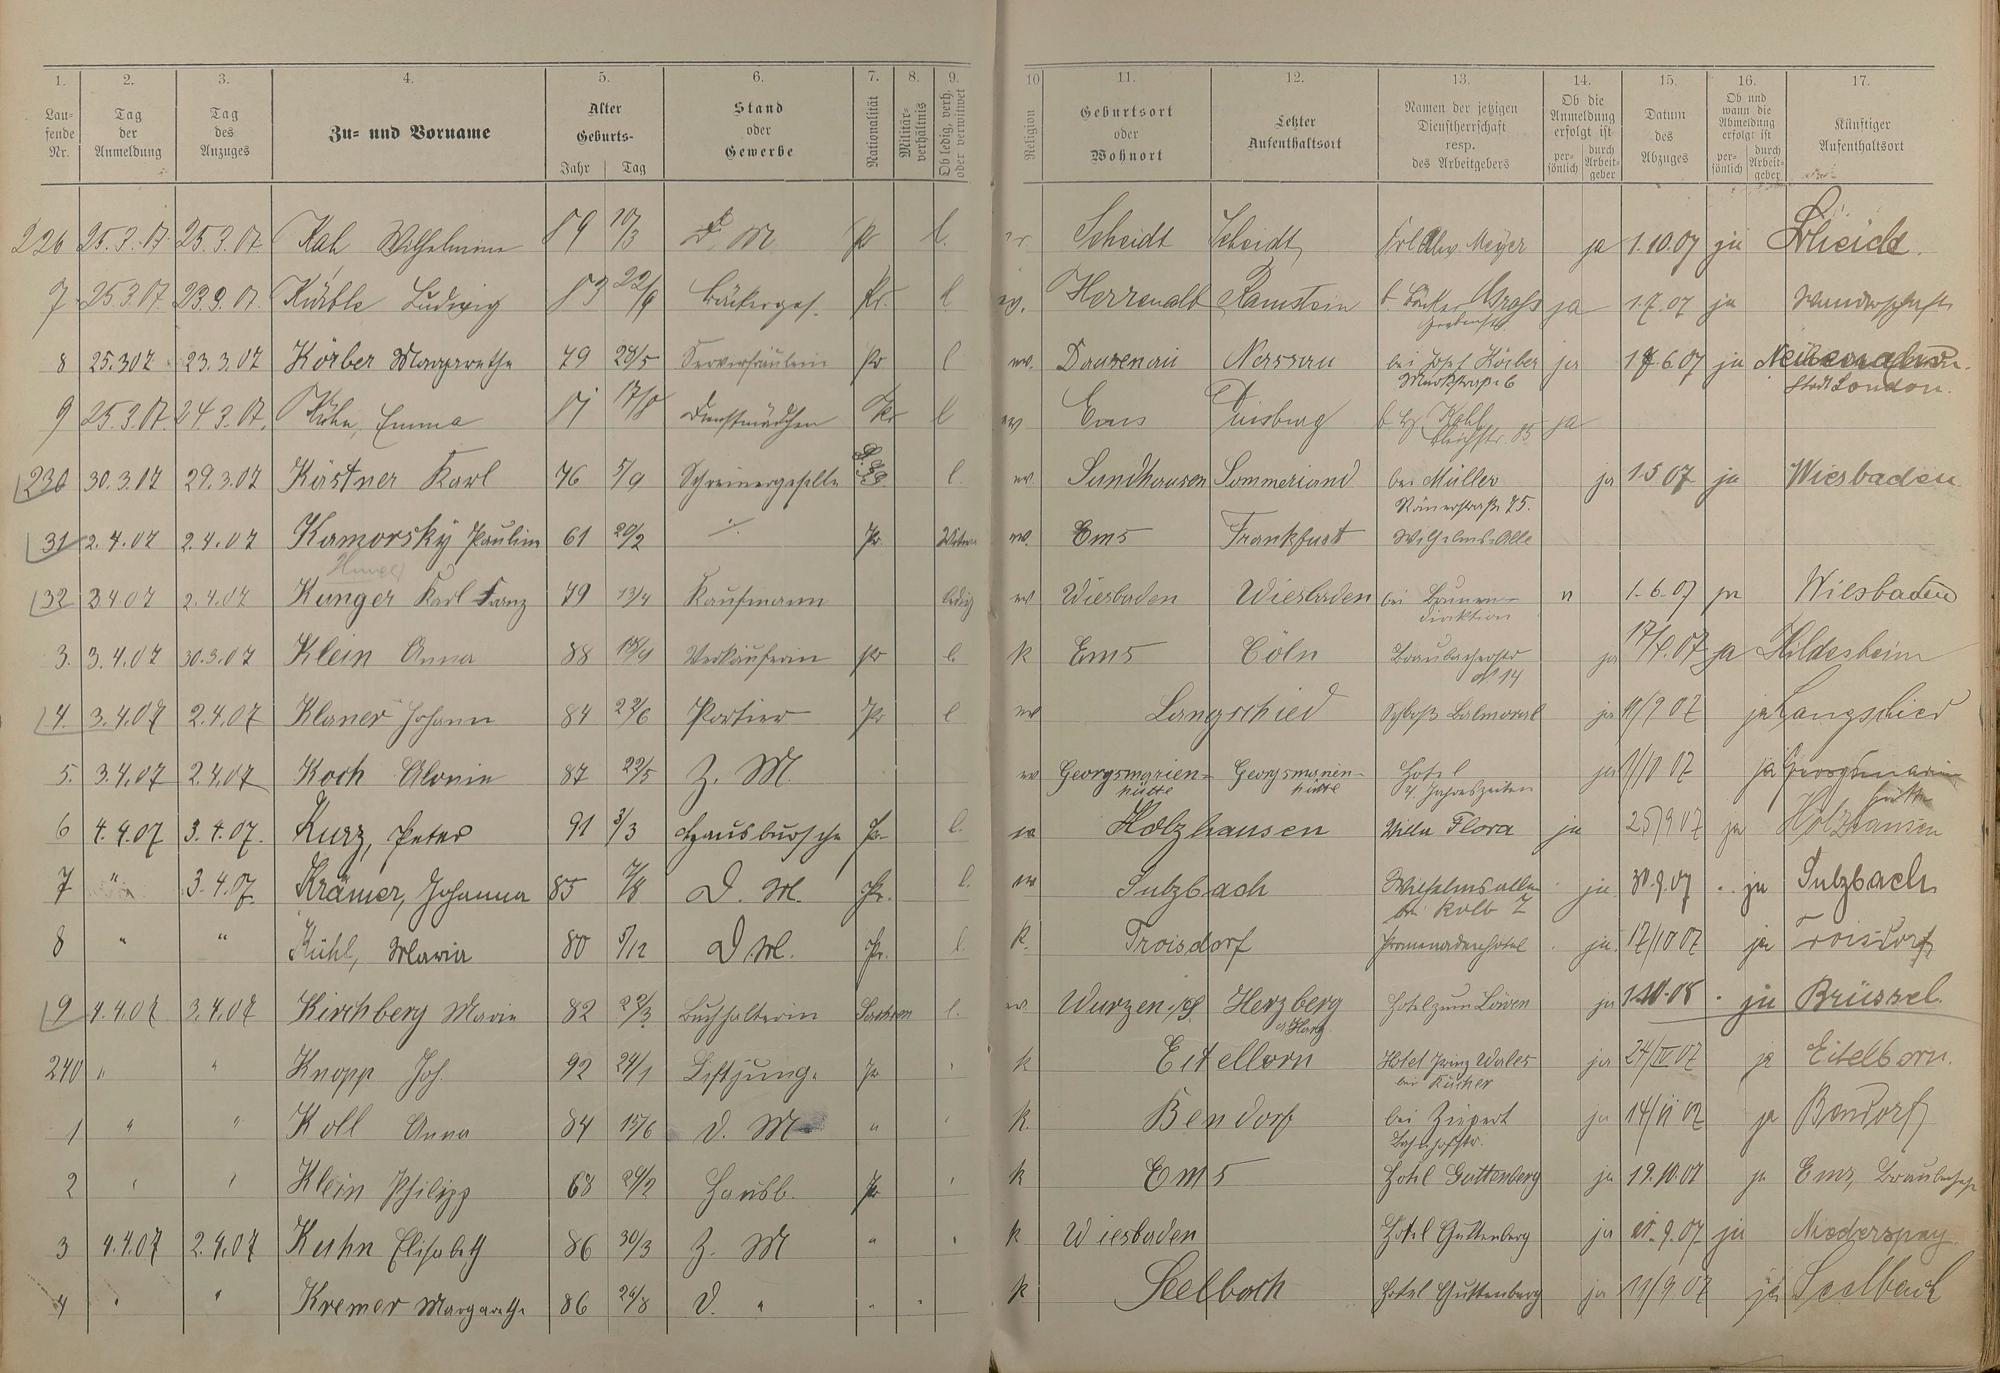 1. 2. 3. 4. 5. 6. 7. 8. 9. 10 11. 12. 13. 14. 15. 16. 17.
Laufende Nr. Tag der Anmeldung Tag des Anzuges Zu- und Vorname Alter Geburts- Jahr Tag Stand oder Gewerbe Nationalität Militär-verhältnis Ob ledig, verh. oder verwitwet Religion Geburtsort oder Wohnort Letzter Aufenthaltsort Namen der jetzigen Dienstherrschaft resp. des Arbeitgebers Ob die Anmeldung erfolgt ist per-sönlich durch Arbeit-geber Datum des Abzuges Ob und wann die Abmeldung erfolgt ist per-sönlich durch Arbeit-geber Künftiger Aufenthaltsort
226 25.3.07. 25.3.07. Kah Wilhelmine 89 10/3 D. M. pr l. Scheidt Scheidt Meyer ja 1.10.07 ja Scheidt
7 25.3.07. 23.3.07. Ludwig 83 22/9 Bäckerges. Pr. l ev. Herrenalb Ramstein b. Bäcker ja 1.7.07 ja Wanderschaft
8 25.3.07 23.3.07 Körber Margarethe 79 28/5 Servierfräulein Pr l ev. Dausenau Nassau bei Josef Körber ja 6.07 ja
Marktstraße 6 Stadt London.
9 25.3.07. 24.3.07. Kuhn, Emma 17/8 Dienstmädchen Pr l ev Ems Duisburg b. Kohl ja
85
230 30.3.07 29.3.07 Kästner Karl 76 5/9 Schreinergeselle l. ev. Sundhausen bei Müller ja 1.5.07 ja Wiesbaden
Römerstraße 75.
31 2.4.07 2.4.07 Kamorsky Pauline 61 20/2 Pr ev. Ems Frankfurt Wilhelms-Alle
32 3.4.07 2.4.07 Kunger Karl Franz 79 13/4 Kaufmann ledig ev Wiesbaden Wiesbaden bei Brunnen- 1.6.07 ja Wiesbaden
direktion
3. 3.4.07 30.3.07 Klein Anna 88 Verkäuferin pr l. k Ems Cöln Braubacherstr ja ja Hildesheim
No 14
4. 3.4.07 2.4.07 Klaner Johann 84 22/6 Portier Pr l ev Langschied Schloß Balmoral ja 11/9 07 ja Langschied
5. 3.4.07 2.4.07 Koch 87 22/5 Z. M. ev Georgsmarien- Georgsmarien- Hotel ja 1/10 07 ja Georgsmarien
hütte hütte 4. Jahreszeiten hütte
6 4.4.07 3.4.07. Kurz, Peter 91 3/3 Hausbursche Pr. l. ev Holzhausen Villa Flora ja 25/9 07 ja Holzhausen
7 " 3.4.07. Krämer, Johanna 85 7/8 D. M. Pr. l. ev Sulzbach Wilhelmsallee ja 30.9.07 ja Sulzbach
bei Kolb 7
8 " " Kühl, Maria 80 5/12 D. M. Pr. l. K. Troisdorf Promenadenhotel ja. 17/10 07 ja Troisdorf
9 4.4.07 3.4.07 Kirchberg Marie 82 22/3 Buchhalterin Sachsen l. ev. Wurzen, Herzberg Hotel zum Löwen ja 1.10.08 ja Brüssel.
a/Harz
240 " " Knopp Joh. 92 24/1 Liftjunge Pr " k Eitelborn Hotel Prinz Wales ja 24/IV 07 ja Eitelborn.
bei Kücher
1 " " Koll Anna 84 15/6 D. M " " k. Bendorf bei Zispert ja 14/ 07 ja Bendorf
Bahnhofstr.
2 " " Klein Philipp 68 24/2 Hausb. Pr " k Ems Hotel Guttenberg ja 19.10.07 ja Ems,
3 4.4.07 2.4.07 Kuhn Elisabeth 86 30/3 Z. M " " k Wiesbaden Hotel Guttenberg ja 9.07 ja Niederspay.
4 " " Kremer Margarethe 86 24/8 D. " " " k Seelbach Hotel Guttenberg ja 11/9 07 ja Seelbach